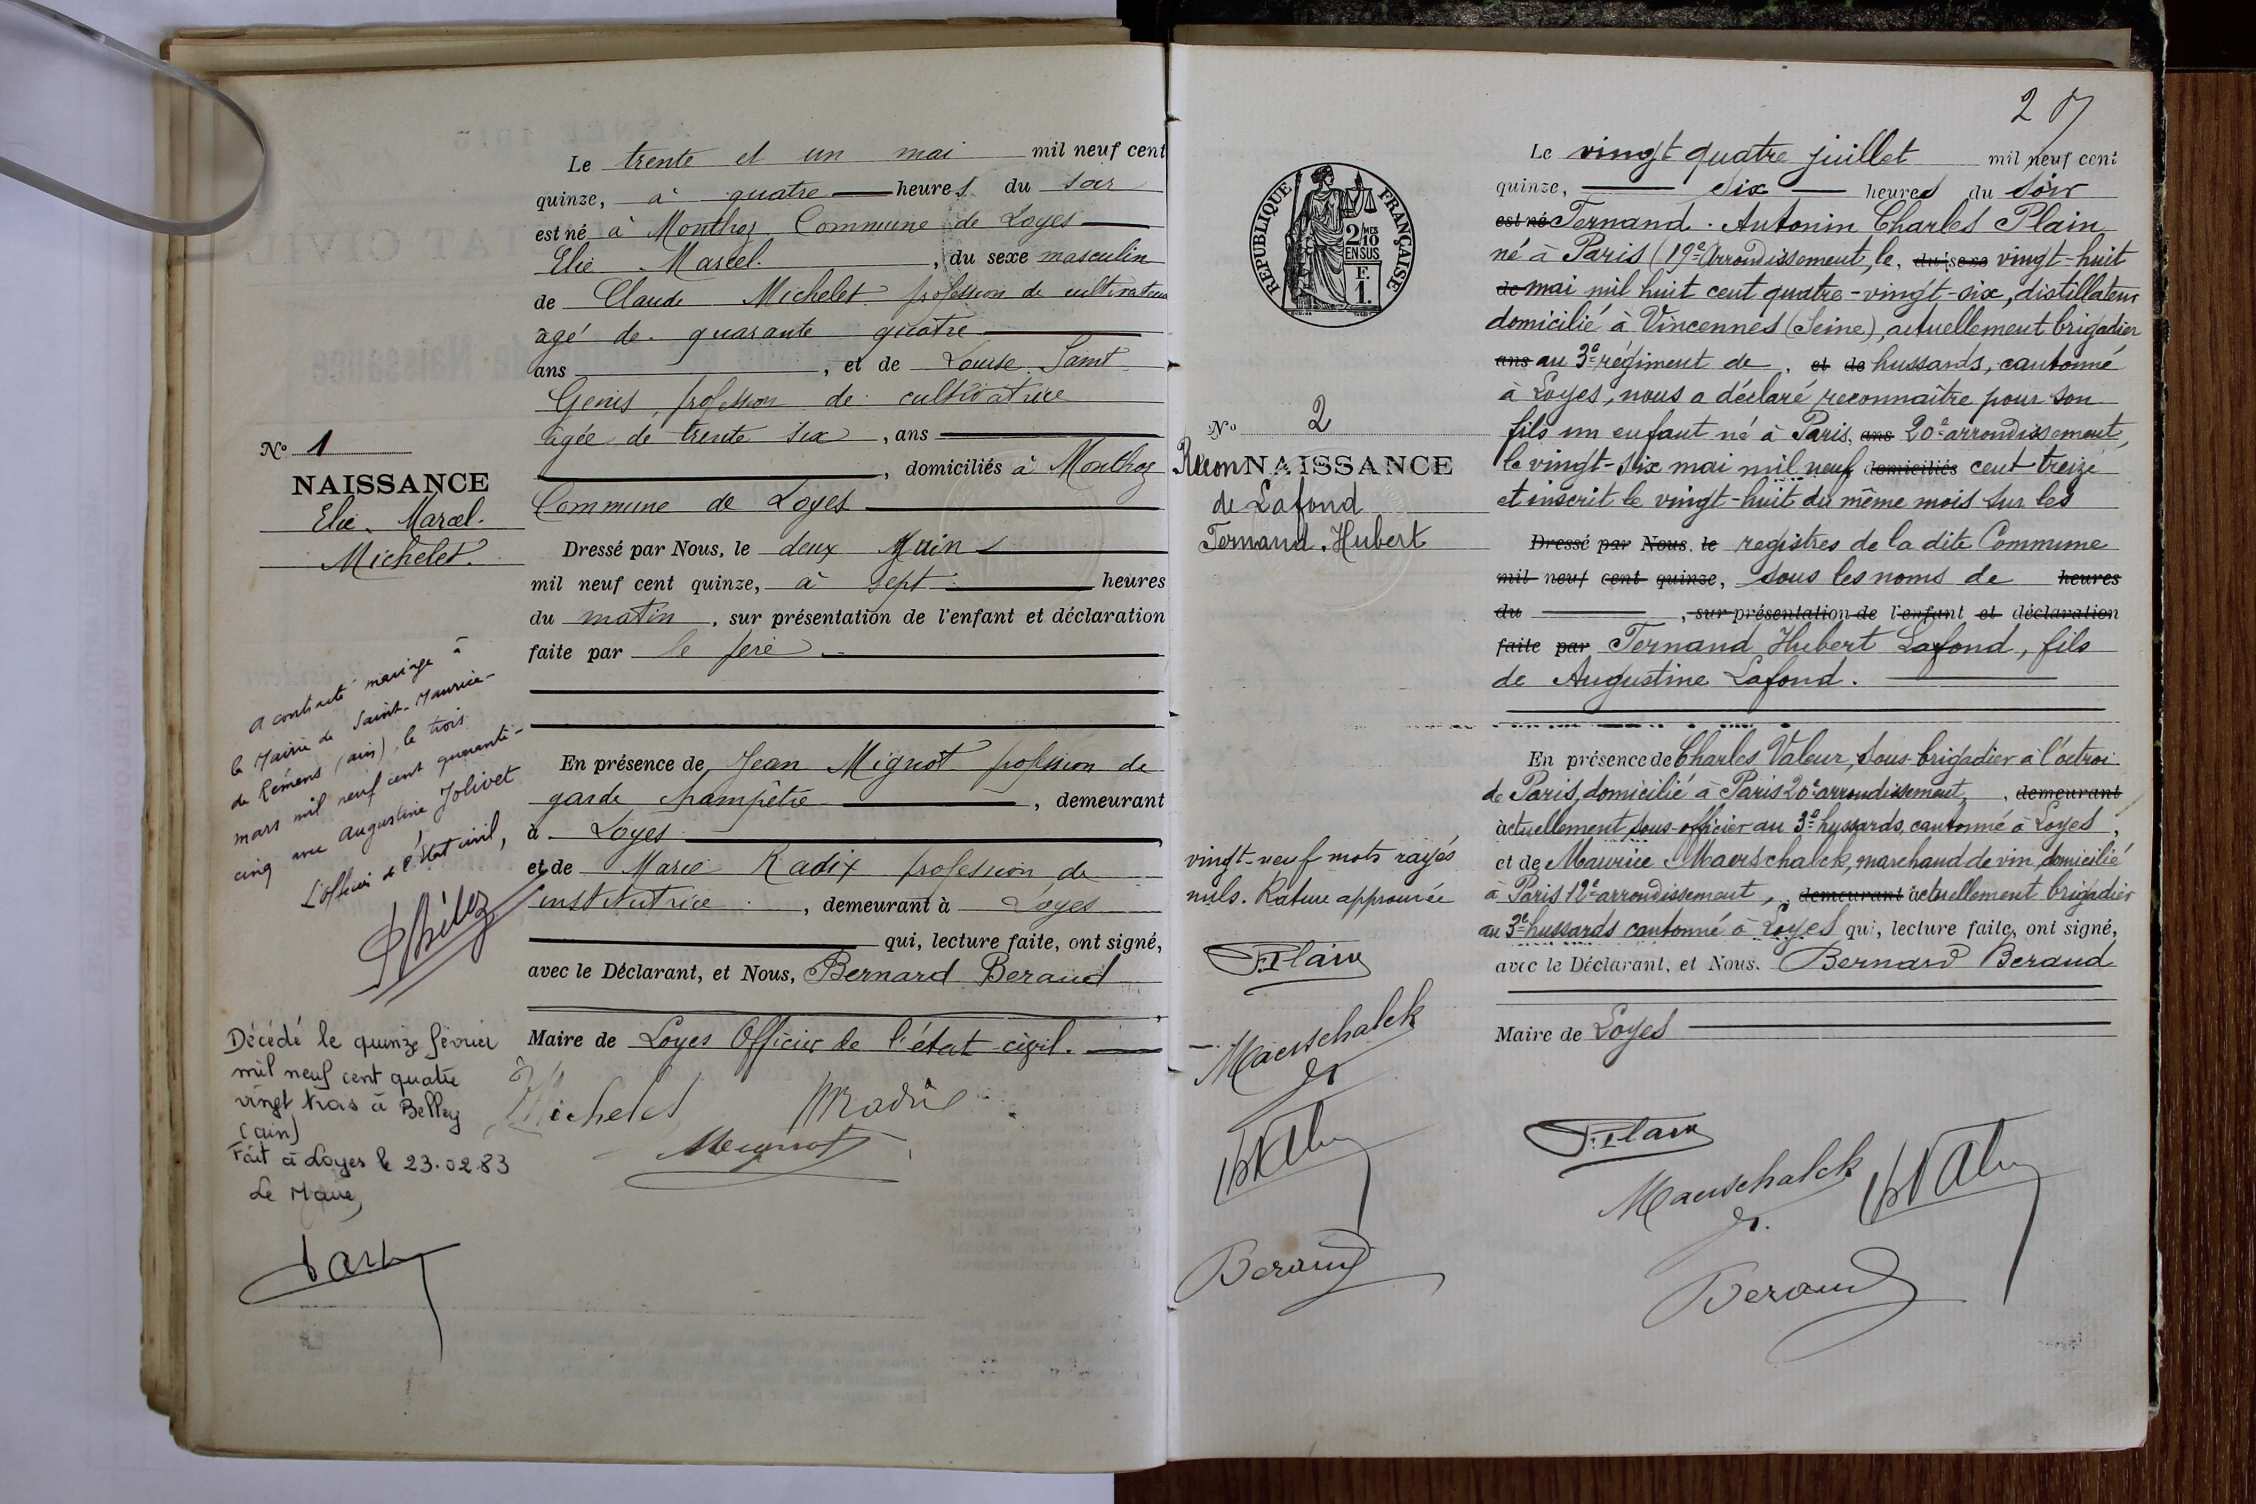 N° 1
NAISSANCE
Elie. Marcel.
Michelet.
a contracté mariage à
la Mairie de Saint-Maurice-
de Rémens (ain), le trois
mars mil neuf cent quarante-
cinq avec Augustine Jolivet
L'officier de l'état civil,
Décédé le quinze février
mil neuf cent quatre
vingt trois à Belley
(ain)
Fait à Loyes le 23.02.83
Le Maire,
Le trente et un mai mil neuf cent
quinze, à quatre heures du soir
est né à Monthoz Commune de Loyes
Elie Marcel. , du sexe masculin
de Claude Michelet profession de cultivateur
agé de quarante quatre
ans , et de Louise Saint
Genis, profession de cultivatrice
agée de trente six , ans
, domiciliés à Monthoz
Commune de Loyes
Dressé par Nous, le deux Juin
mil neuf cent quinze, à sept heures
du matin , sur présentation de l'enfant et déclaration
faite par le père
En présence de Jean Mignot profession de
garde champêtre , demeurant
à Loyes
et de Marie Radix profession de
institutrice , demeurant à Loyes
qui, lecture faite, ont signé,
avec le Déclarant, et Nous, Bernard Beraud
Maire de Loyes Officier de l'état civil.
Michelet MRadix
Mignot
2
RÉPUBLIQUE FRANÇAISE
2/10 MES
EN SUS
F.
1.
N° 2
ReconNAISSANCE
de Lafond
Fernand. Hubert
vingt-neuf mots rayés
nuls. Rature approuvée
F.Plain
Maerschalck
Beraud
Le vingt quatre juillet mil neuf cent
quinze, six heures du soir
est né Fernand. Antonin Charles Plain
né à Paris (19e Arrondissement, le, du sexe vingt-huit
de mai mil huit cent quatre-vingt-six, distillateur
domicilié à Vincennes (Seine), actuellement brigadier
ans au 3e régiment de , et de hussards, cantonné
à Loyes, nous a déclaré reconnaître pour son
fils un enfant né à Paris, ans 20e arrondissement,
le vingt-six mai mil neuf domiciliés cent treize
et inscrit le vingt-huit du même mois sur les
Dressé par Nous, le registres de la dite Commune
mil neuf cent quinze, sous les noms de heures
du , sur présentation de l'enfant et déclaration
faite par Fernand Hubert Lafond, fils
de Augustine Lafond.
En présence de Charles Valeur, sous-brigadier à l'octroi
de Paris, domicilié à Paris 20e arrondissement, , demeurant
actuellement sous-officier au 3e hussards, cantonné à Loyes,
et de Maurice Maerschalck, marchand de vin, domicilié
à Paris 12e arrondissement, , demeurant actuellement brigadier
au 3e hussards cantonné à Loyes qui, lecture faite, ont signé,
avec le Déclarant, et Nous. Bernard Beraud
Maire de Loyes
F.Plain
Maerschalck
Beraud